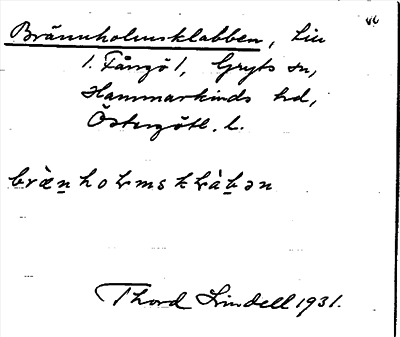 Brännholmsklabben, Liu
1. Fångö 1, Gryts sn,
Hammarkinds hd,
Östergötl. l.
bræ̀n̲hoɫmskɫàb̲ən
Thord Lindell 1931.